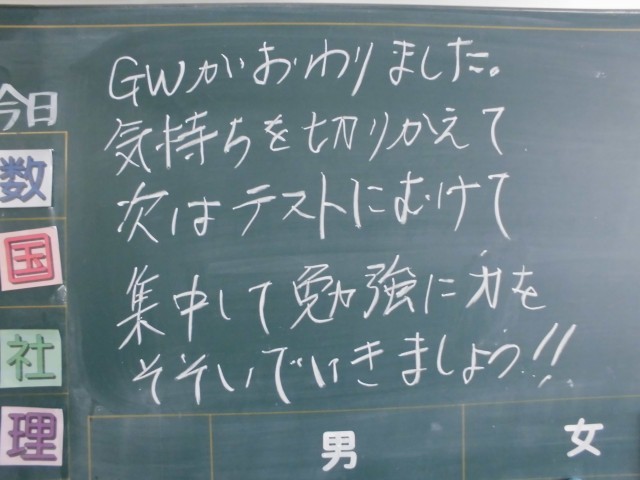 GWがおわりました。
気持ちを切りかえて
次はテストにむけて
集中して勉強に力を
そそいでいきましょう!!
今日
数
国
社
理
男
女